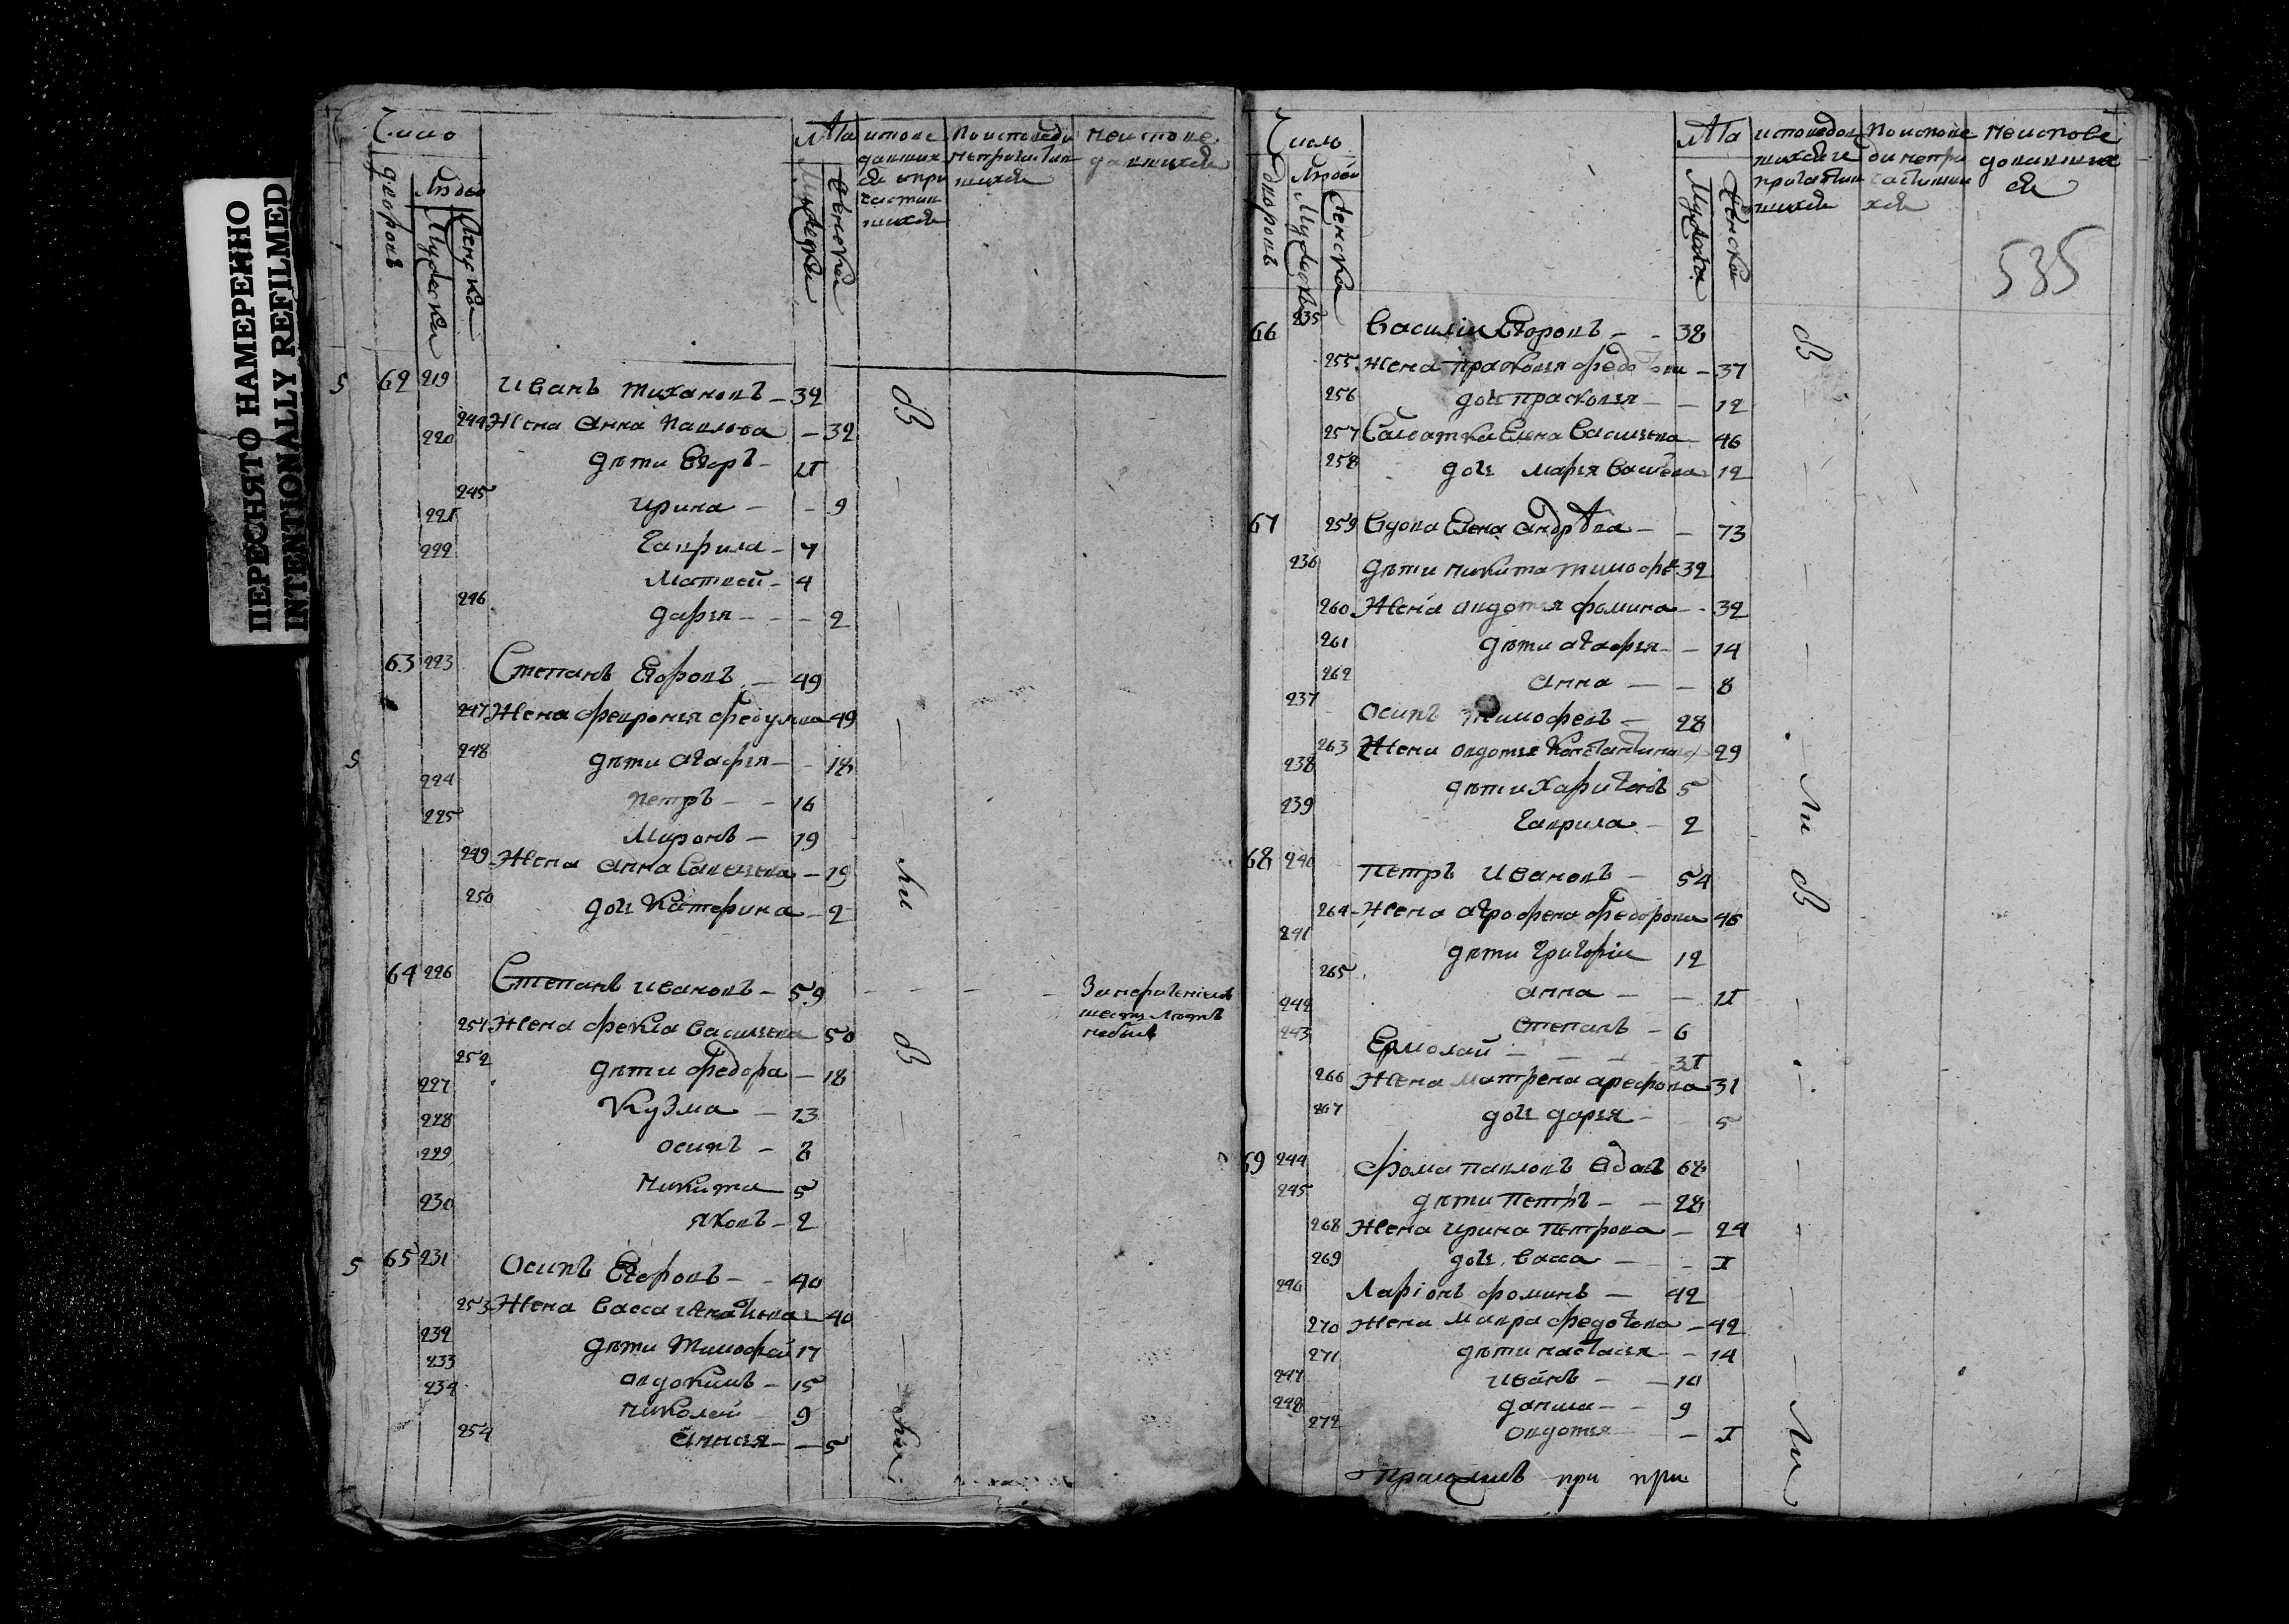 ПЕРЕСНЯТО НАМЕРЕННО
INTENTIONALLY REFILMED
Число
дворовъ
Людей
Мужеска
Женска
Лѣта
Мужеска
Женска
исповедавшихся и причастившихся
По исповеди непричастившихся
неисповедавшихся
5 62 219 Иванъ Тихановъ – 32
244 Жена Анна Павлова – 32
220 дѣти Егоръ – 11
245 Ирина – 9
221 Гаврила – 7
222 Матвей – 4
246 Дарья – 2
63 223 Степанъ Егоровъ – 49
247 Жена Февронья Федулова 49
5 248 дѣти Агафья – 18
224 Петръ – 16
225 Миронъ – 19
249 Жена Анна Савельева – 19
250 дочь Катерина – 2
64 226 Степанъ Ивановъ – 59
251 Жена Фекла Васильева 50
252 дѣти Федора – 18
227 Кузма – 13
228 Осипъ – 8
229 Никита 5
230 Яковъ – 2
5 65 231 Осипъ Егоровъ – 40
253 Жена Васса Игнатьева – 40
232 дѣти Тимофей 17
233 Авдокимъ – 15
234 Николай 9
254 Анна – 5
Число
дворовъ
Людей
Мужеска
Женска
Лѣта
Мужеска
Женска
исповедавшихся и причастившихся
По исповеди непричастившихся
неисповедавшихся
535
66 235 Василий Егоровъ – 38
255 Жена Прасковья Федотова – 37
256 дочь Прасковья – 12
257 Салдатка Елена Васильева – 46
258 дочь Марья Васильева 12
67 259 Вдова Елена Андрѣева – 73
236 дѣти Никита Тимофе 32
260 Жена Авдотья Фомина – 32
261 дѣти Агафья – 14
262 Анна – 8
237 Осипъ Тимофеевъ – 28
263 Жена Авдотья Константинова 29
238 дѣти Харитонъ 5
239 Гаврила – 2
68 240 Петръ Ивановъ – 54
264 Жена Аграфена Федорова 46
241 дѣти Григорий 12
265 Анна – 11
242 Степанъ – 6
243 Ермолай – 31
266 Жена Матрена Арефьева 31
267 дочь Дарья – 5
69 244 Фома Павловъ вдовъ 68
245 дѣти Петръ – 28
268 Жена Ирина Петрова – 24
269 дочь Васса – 1
246 Ларионъ Фоминъ – 42
270 Жена Мавра Федотова – 42
271 дѣти Настасья – 14
247 Иванъ – 10
248 Данила – 9
272 Авдотья – 1